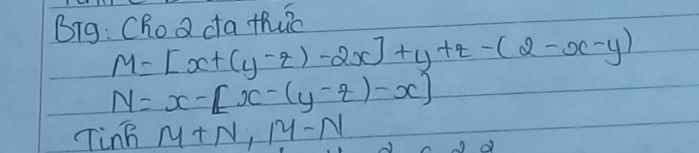 BT9: Cho 2 đa thức
M = [x+(y-z)-2x]+y+z-(2-x-y)
N = x-[x-(y-z)-x]
Tính M+N, M-N